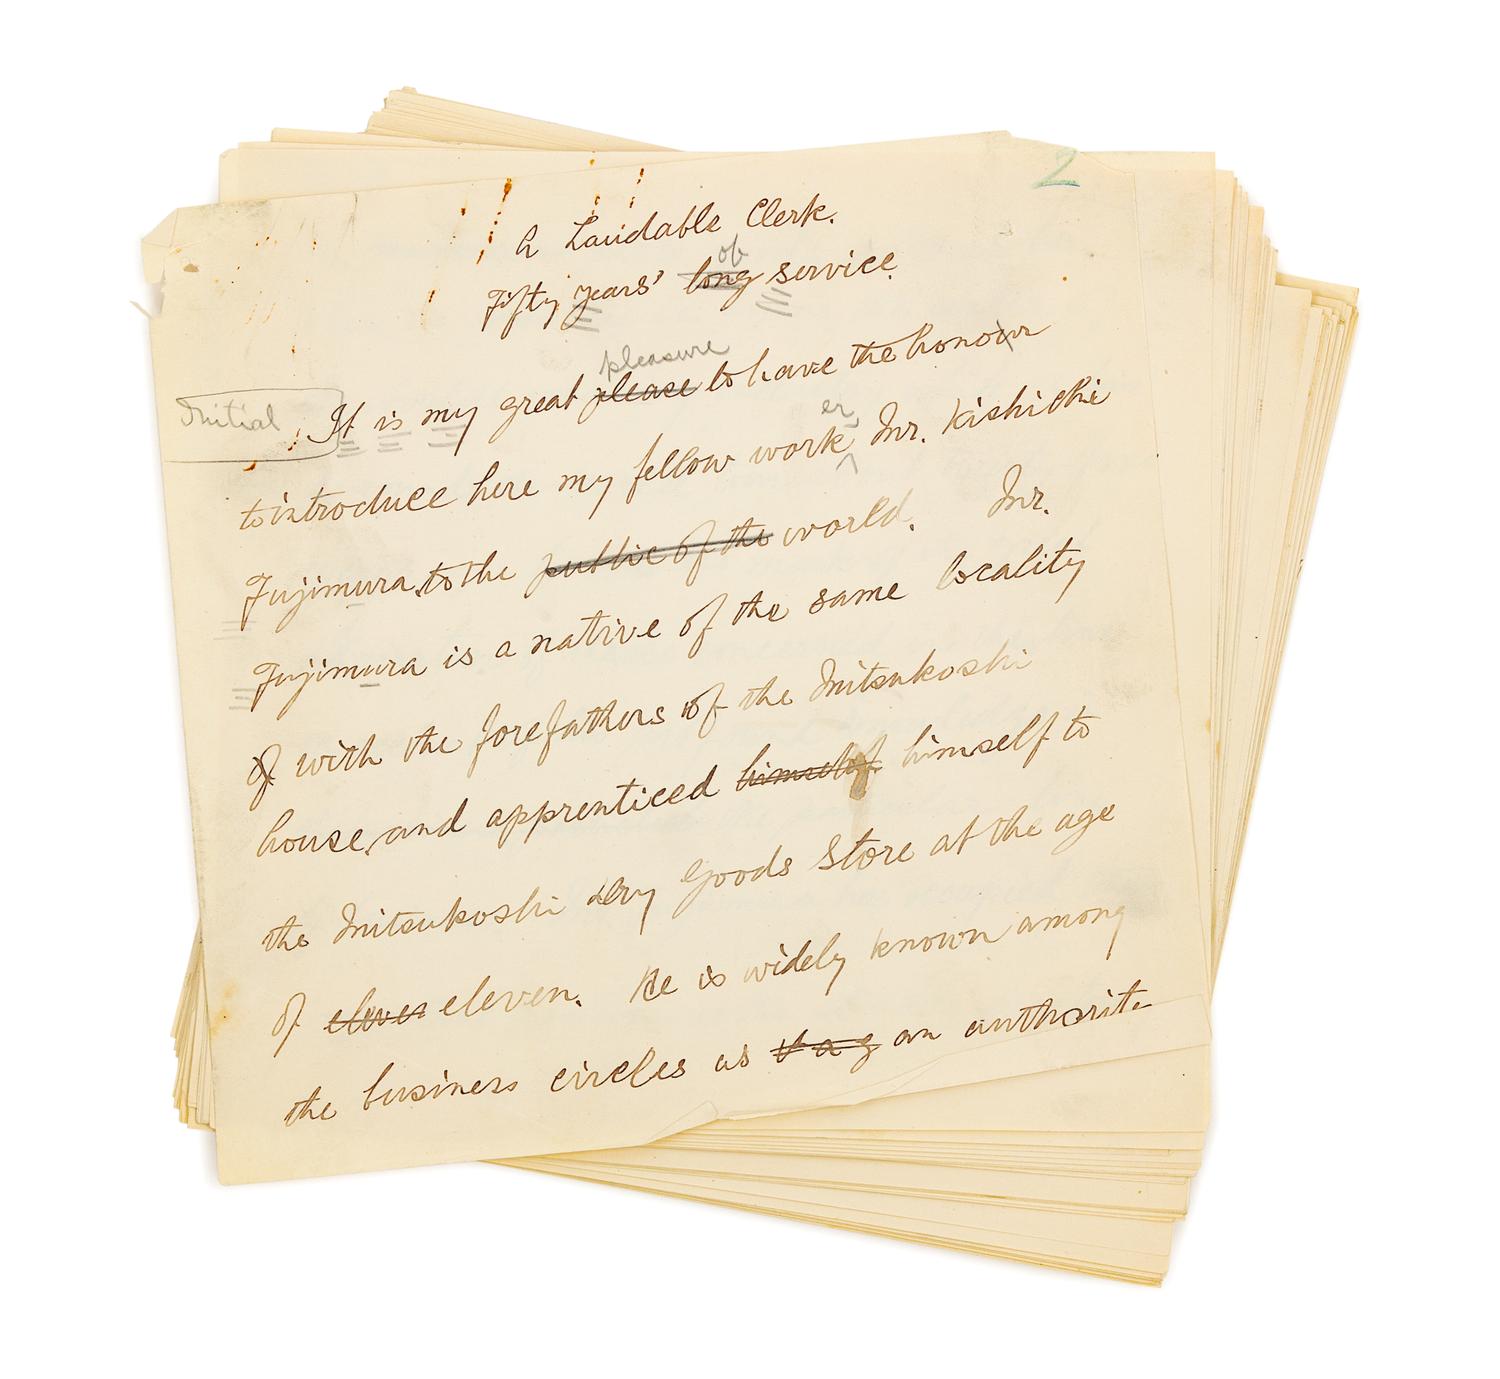 2
A Laudable Clerk.
of
Fifty years' long service.
pleasure
Initial It is my great please to have the honour
er
to introduce here my fellow work Mr. Kishichi
Fujimura, to the public of the world. Mr.
Fujimura is a native of the same locality
of with the forefathers of the Mitsukoshi
house, and apprenticed himself himself to
the Mitsukoshi dry goods store at the age
of eleven. He is widely known among
the business circles as an authorit